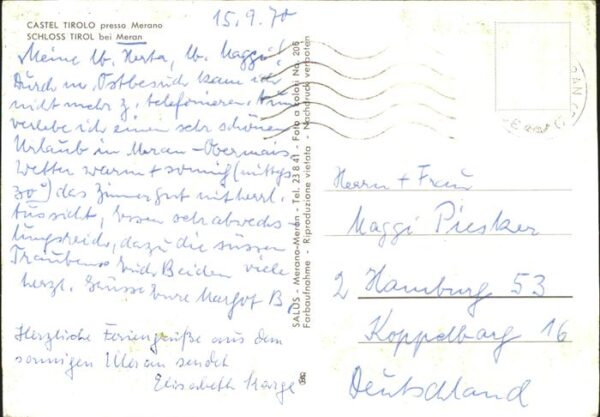 CASTEL TIROLO presso Merano
SCHLOSS TIROL bei Meran
15.9.70
Meine lb. Herta, lb. Maggi!
Durch m. Ostbesuch kam ich
nicht mehr z. telefonieren. Nun
verlebe ich einen sehr schönen
Urlaub in Meran-Obermais
Wetter warm + sonnig (mittgs
30°) das Zimmer gut mit herrl.
Aussicht, Essen sehr abwechs-
lungsreich, dazu die süssen
Trauben. Euch Beiden viele
herzl. Grüsse Eure Margot B
Herzliche Feriengrüße aus dem
sonnigen Meran sendet
Elisabeth
SALUS - Merano-Meran - Tel. 23841 - Foto a colori No. 206
Farbaufnahme - Riproduzione vietata - Nachdruck verboten
Herrn + Frau
Maggi Piesker
2 Hamburg 53
Koppelbarg 16
Deutschland